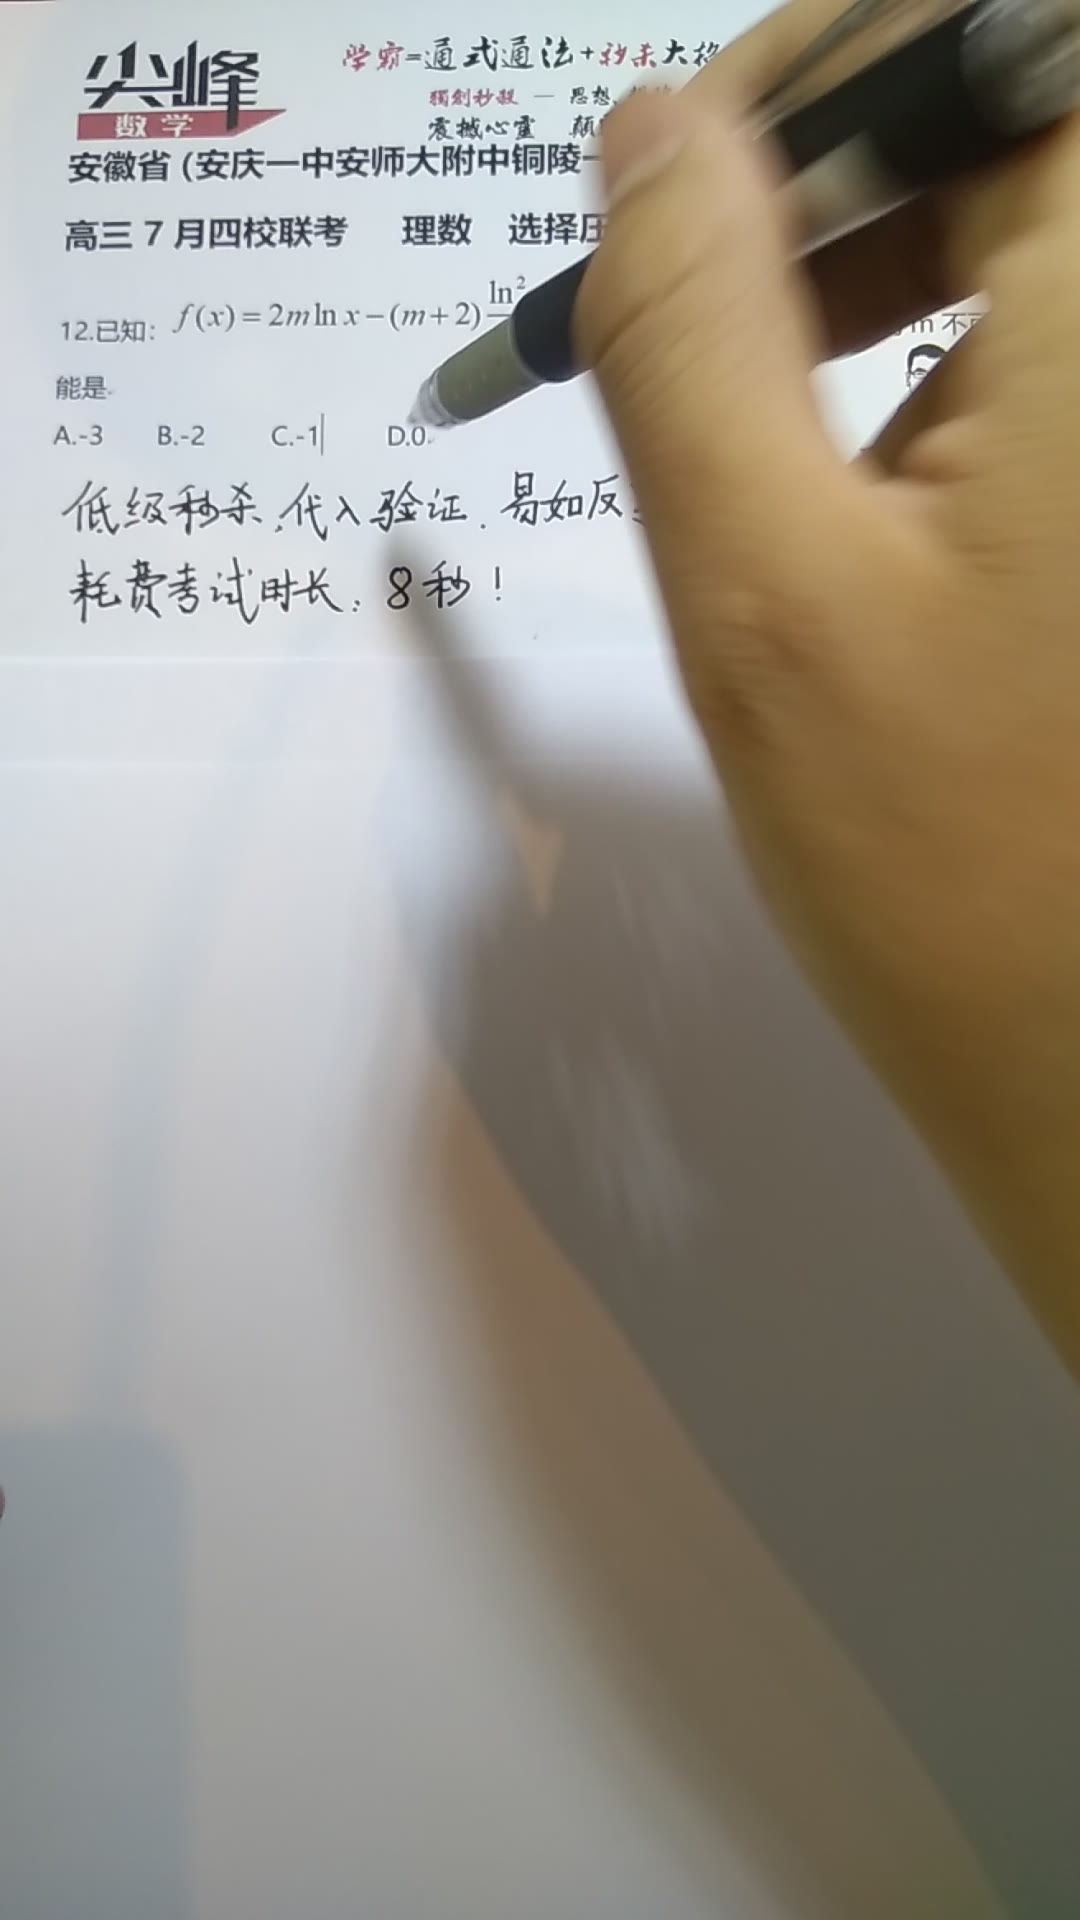 尖峰
数学
学霸=通式通法+秒杀大招
獨創秒殺 — 思想、
震撼心靈 顛
安徽省(安庆一中安师大附中铜陵一
高三7月四校联考 理数 选择压
12.已知: f(x)=2m ln x-(m+2) ln²
m 不可
能是
A.-3 B.-2 C.-1 D.0
低级秒杀:代入验证.易如反
耗费考试时长:8秒!